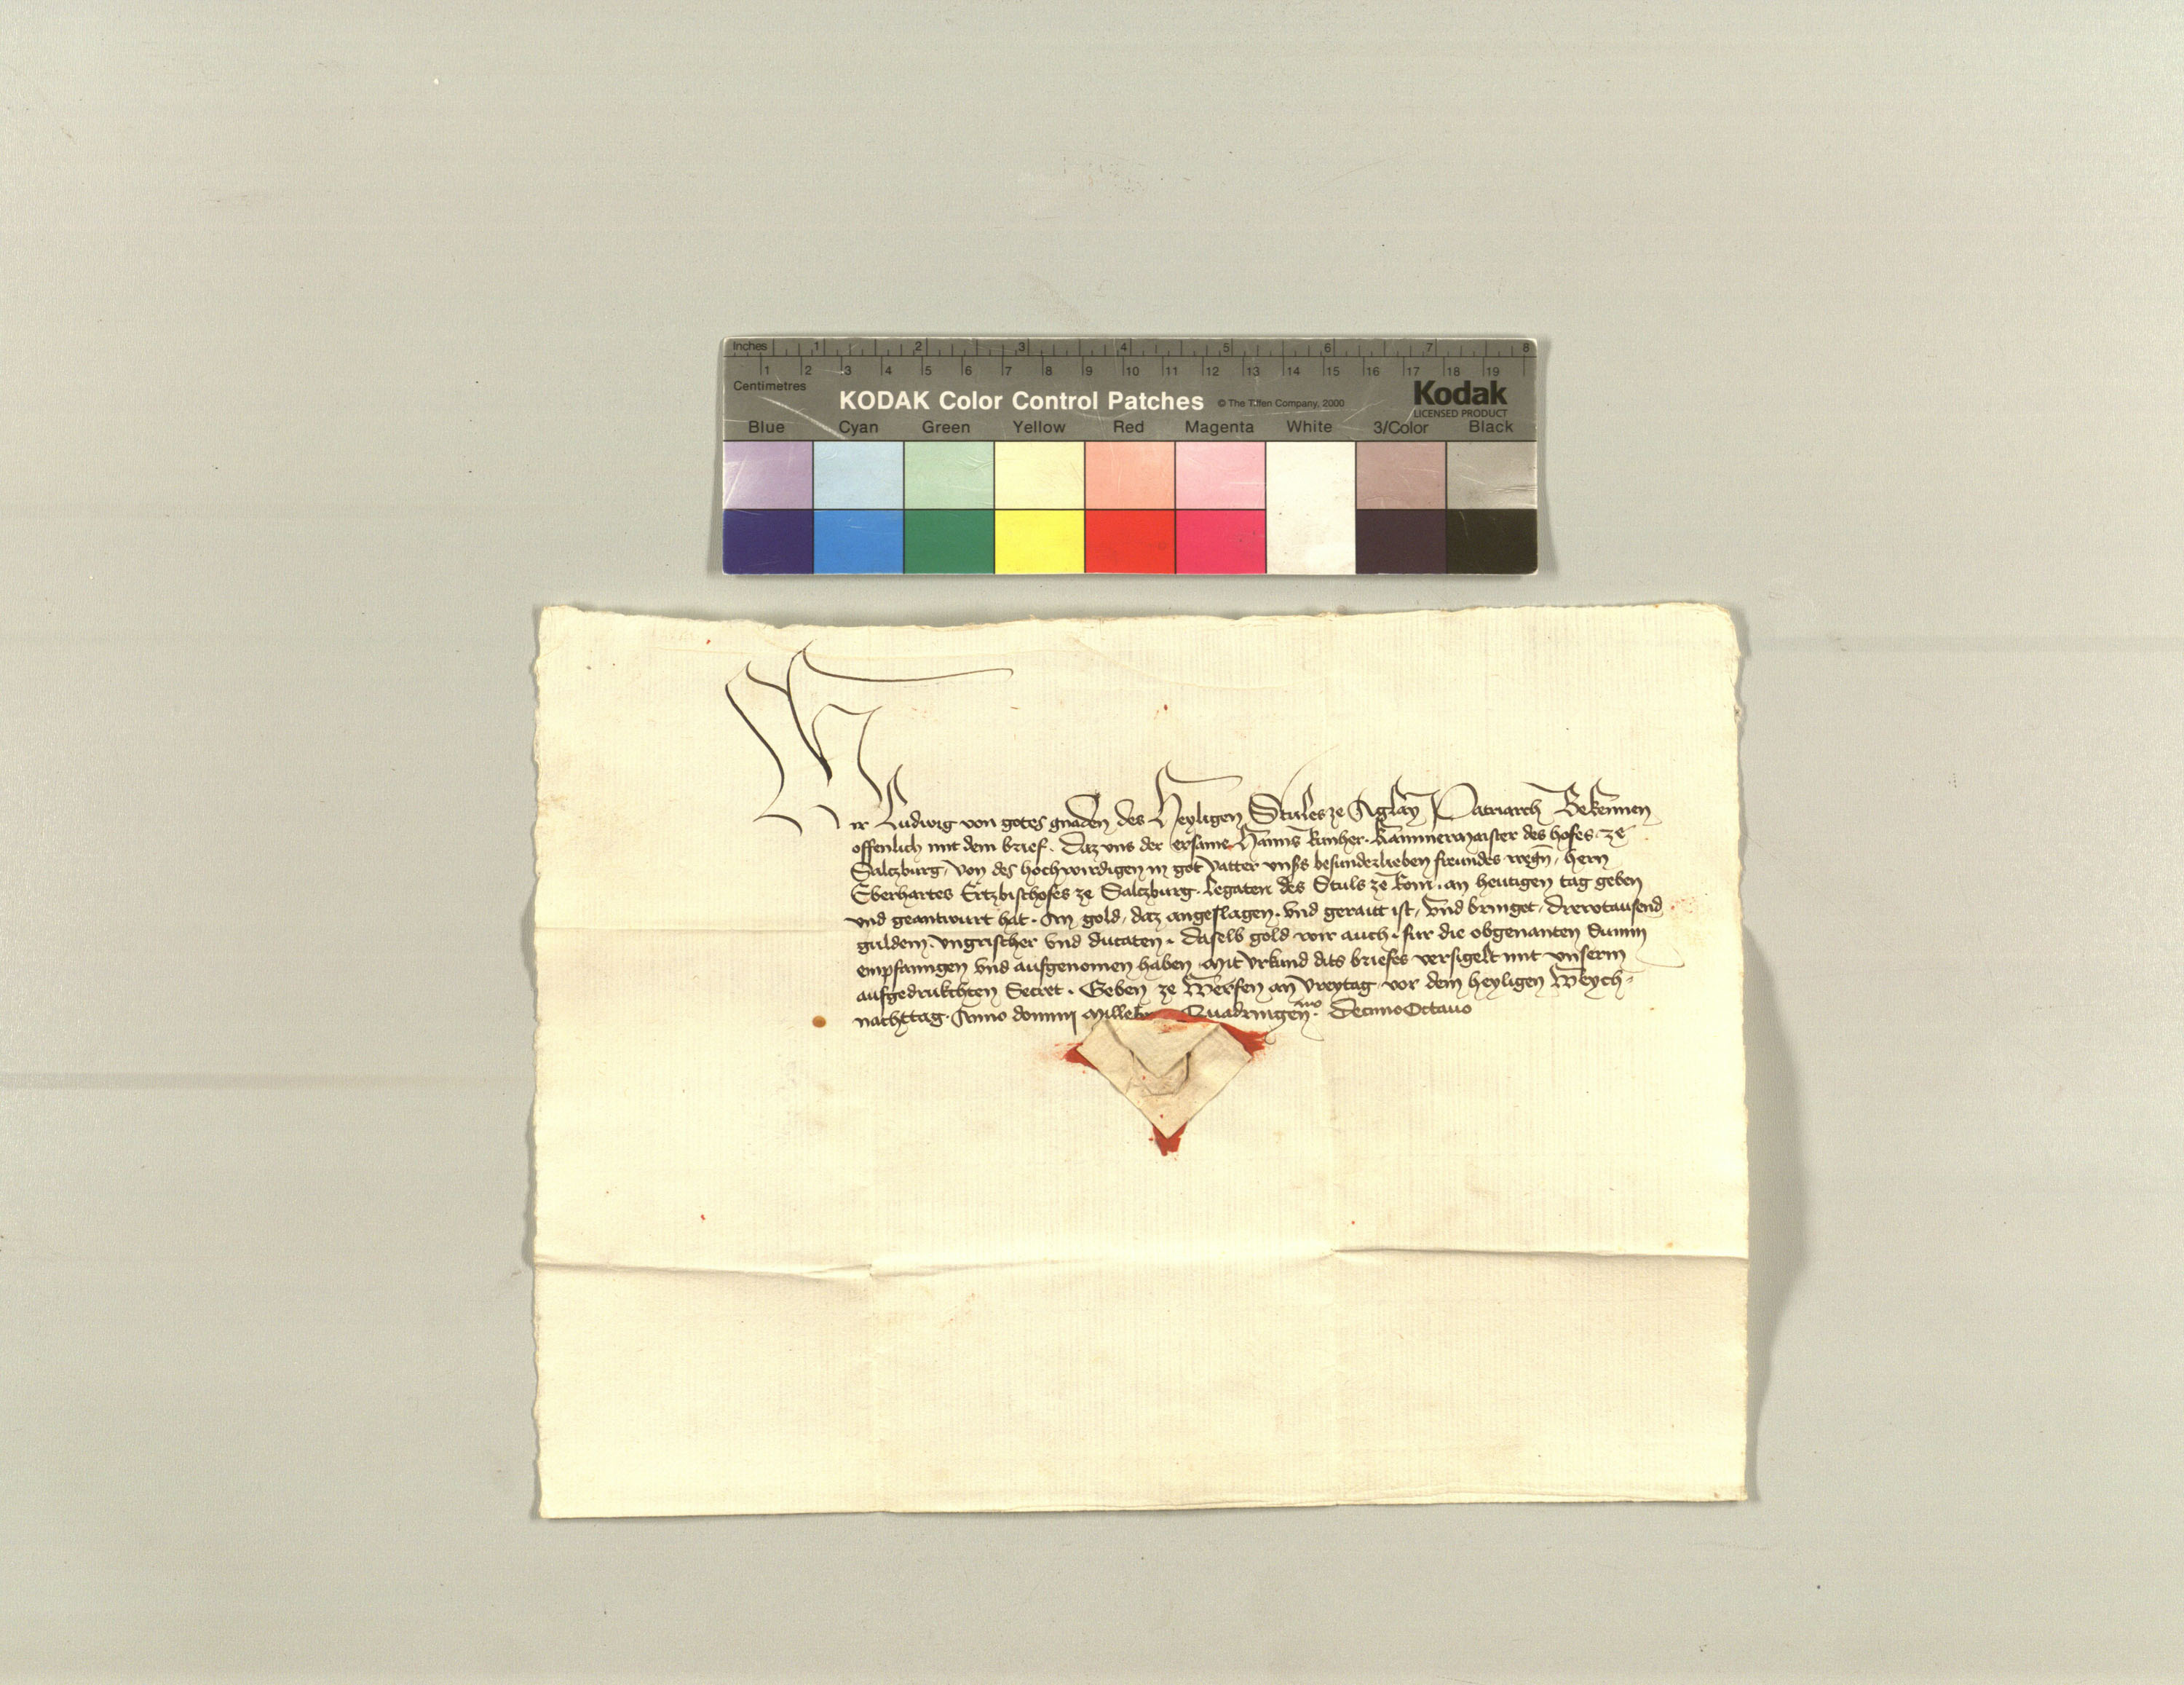 Inches 1 2 3 4 5 6 7 8
1 2 3 4 5 6 7 8 9 10 11 12 13 14 15 16 17 18 19
Centimetres
KODAK Color Control Patches © The Tiffen Company, 2000 Kodak
LICENSED PRODUCT
Blue Cyan Green Yellow Red Magenta White 3/Color Black
Wir Ludwig von gotes gnaden des Heyligen Stules ze Aglay Patriarch Bekennen
offenlich mit dem brief. Daz vns der ersame Hanns kamermaister des hofes ze
Salczburg, von des hochwirdigen in got vatter vnsers besunderlieben freundes wegen, hern
Eberhartes Ertzbischofes ze Salczburg. legaten des Stuls ze Rom. an heutigen tag geben
vnd geantwurt hat. In gold, daz angeslagen. vnd geraitt ist, vnd bringet, drewtausend
guldein. vngrischer vnd ducaten. Daselb gold wir auch. fur die obgenanten Summ
empfanngen vnd aufgenomen haben. Mit vrkund dits briefes versigelt mit vnserm
aufgedrukchten Secret. Geben ze Werfen an vreytag vor dem heyligen Weych-
nachttag. Anno domini Quadringen.mo Decimo Octauo